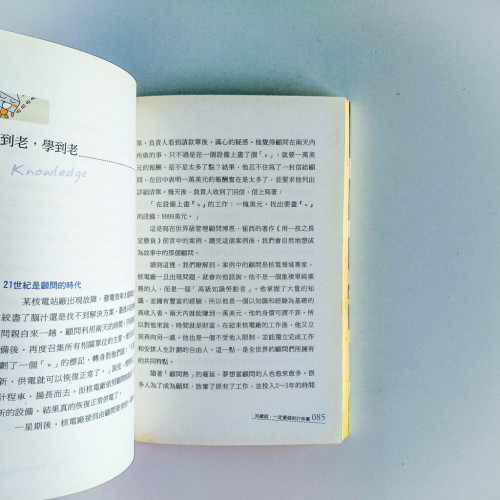 到老，學到老
Knowledge
21世紀是顧問的時代
某核電站廠出現故障，發電效率大
絞盡了腦汁還是找不到解決方案，最後
問親自來一趟。顧問利用兩天的時間，
備後，再度召集所有相關單位的主管，
劃了一個「×」的標記，轉身對他們說：「
新，供電就可以恢復正常了。」說完，
計程車，揚長而去。而核電廠依照顧問
新的設備，結果真的恢復正常供電了。
一星期後，核電廠接到由顧問
單，負責人看到請款單後，滿心的疑惑。他覺得顧問在兩天內
所做的事，只不過是在一個設備上畫了個「×」，就要一萬美
元的報酬，是不是太多了點？結果，他忍不住寫了一封信給顧
問，在信中表明一萬美元的報酬實在是太多了，並要求他列出
詳細清單。幾天後，負責人收到了回信，信上寫著：
「在設備上畫『×』的工作：一塊美元，找出要畫『×』
的設備：9999美元。」
這是寫在世界級管理顧問博恩．崔西的著作《用一技之長
定勝負》前言中的案例，讀完這個案例後，我們會自然地想成
為故事中的那個顧問。
原則這裡，我們瞭解到，案例中的顧問是核電領域專家，
核電廠一旦出現問題，就會向他諮詢。他不是一個重複單純業
務的人，而是一個「高級知識勞動者」。他掌握了大量的知
識，並擁有豐富的經驗，所以他是一個以知識和經驗為基礎的
高收入者，兩天內就能賺到一萬美元。他的身價可謂不菲，所
以對他來說，時間就是財富。在結束核電廠的工作後，他又立
刻奔向另一處。他也是一個不受他人限制，並能獨立完成工作
和安排人生計劃的自由人。這一點，是全世界的顧問們所擁有
的共同特點。
隨著「顧問熱」的蔓延，夢想當顧問的人也愈來愈多，很
多人為了成為顧問，放棄了原有的工作，並投入2～3年的時間
085